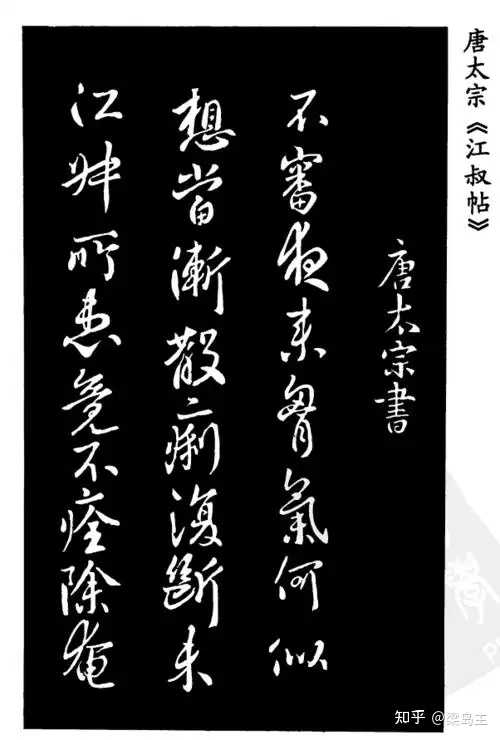 唐太宗《江叔帖》
唐太宗書
不審夜来胷氣何似
想當漸散痢復斷未
江叔所患竟不痊除奄
知乎 @梁岛主